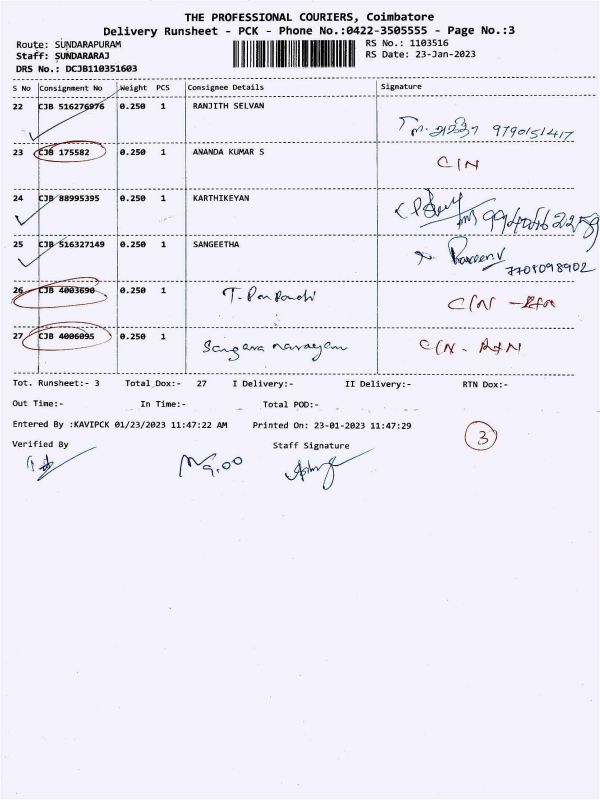 THE PROFESSIONAL COURIERS, Coimbatore
Delivery Runsheet - PCK - Phone No.:0422-3505555 - Page No.:3
Route: SUNDARAPURAM
Staff: SUNDARARAJ
DRS No.: DCJB110351603
RS No.: 1103516
RS Date: 23-Jan-2023
S No Consignment No Weight PCS Consignee Details Signature
22 CJB 516276976 0.250 1 RANJITH SELVAN
9790151417
23 CJB 175582 0.250 1 ANANDA KUMAR S C/N
24 CJB 88995395 0.250 1 KARTHIKEYAN
25 CJB 516327149 0.250 1 SANGEETHA
7708098902
26 CJB 4003690 0.250 1 C/N
27 CJB 4006095 0.250 1 Sangara narayan C/N - RTN
Tot. Runsheet:- 3 Total Dox:- 27 I Delivery:- II Delivery:- RTN Dox:-
Out Time:- In Time:- Total POD:-
Entered By :KAVIPCK 01/23/2023 11:47:22 AM Printed On: 23-01-2023 11:47:29
3
Verified By Staff Signature
9.00